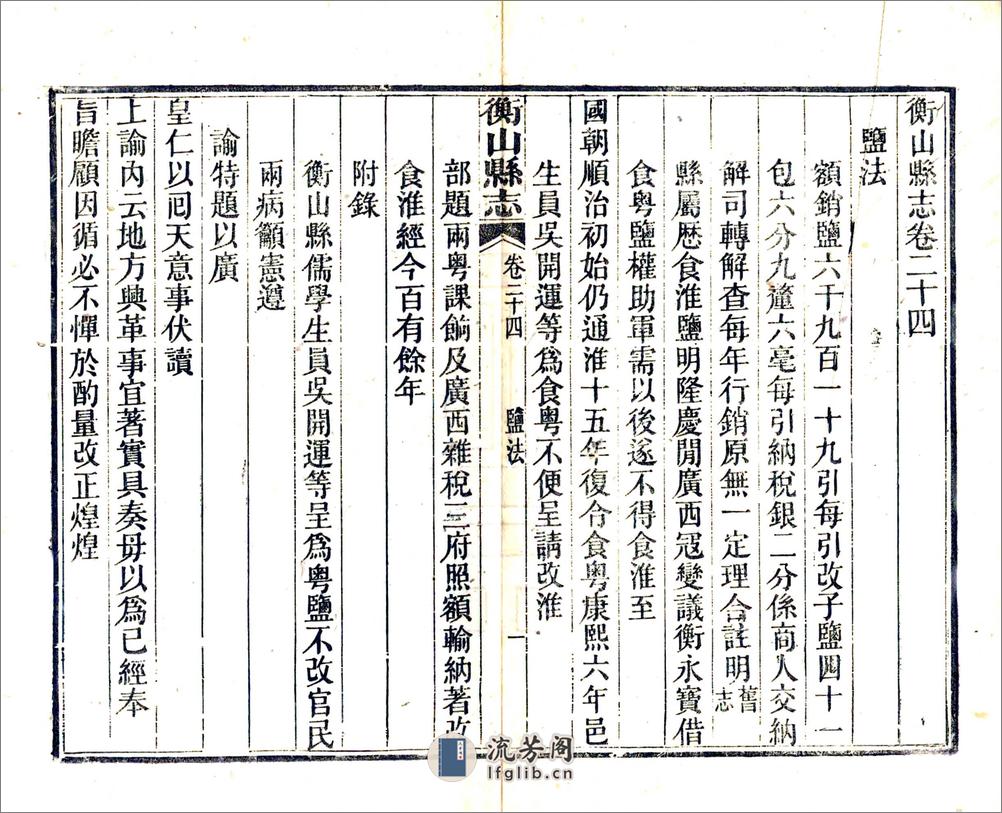 衡山縣志卷二十四
鹽法
額銷鹽六千九百一十九引每引改子鹽四十一
包六分九釐六毫每引納稅銀二分係商人交納
解司轉解查每年行銷原無一定理合註明舊志
縣屬歷食淮鹽明隆慶閒廣西冦變議衡永寶借
食粵鹽權助軍需以後遂不得食淮至
國朝順治初始仍通淮十五年復合食粵康熙六年邑
生員吳開運等爲食粵不便呈請改淮
衡山縣志 卷二十四 鹽法 一
部題兩粵課餉及廣西雜稅三府照額輸納著改
食淮經今百有餘年
附錄
衡山縣儒學生員吳開運等呈爲粵鹽不改官民
兩病籲憲遵
諭特題以廣
皇仁以囘天意事伏讀
上諭內云地方興革事宜著實具奏毋以爲已經奉
旨瞻顧因循必不憚於酌量改正煌煌
流芳阁
lfglib.cn